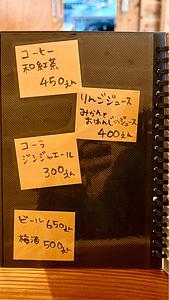 コーヒー
和紅茶
450えん
りんごジュース
みかんと
おれんじのジュース
400えん
コーラ
ジンジャエール
300えん
ビール 650えん
梅酒 500えん